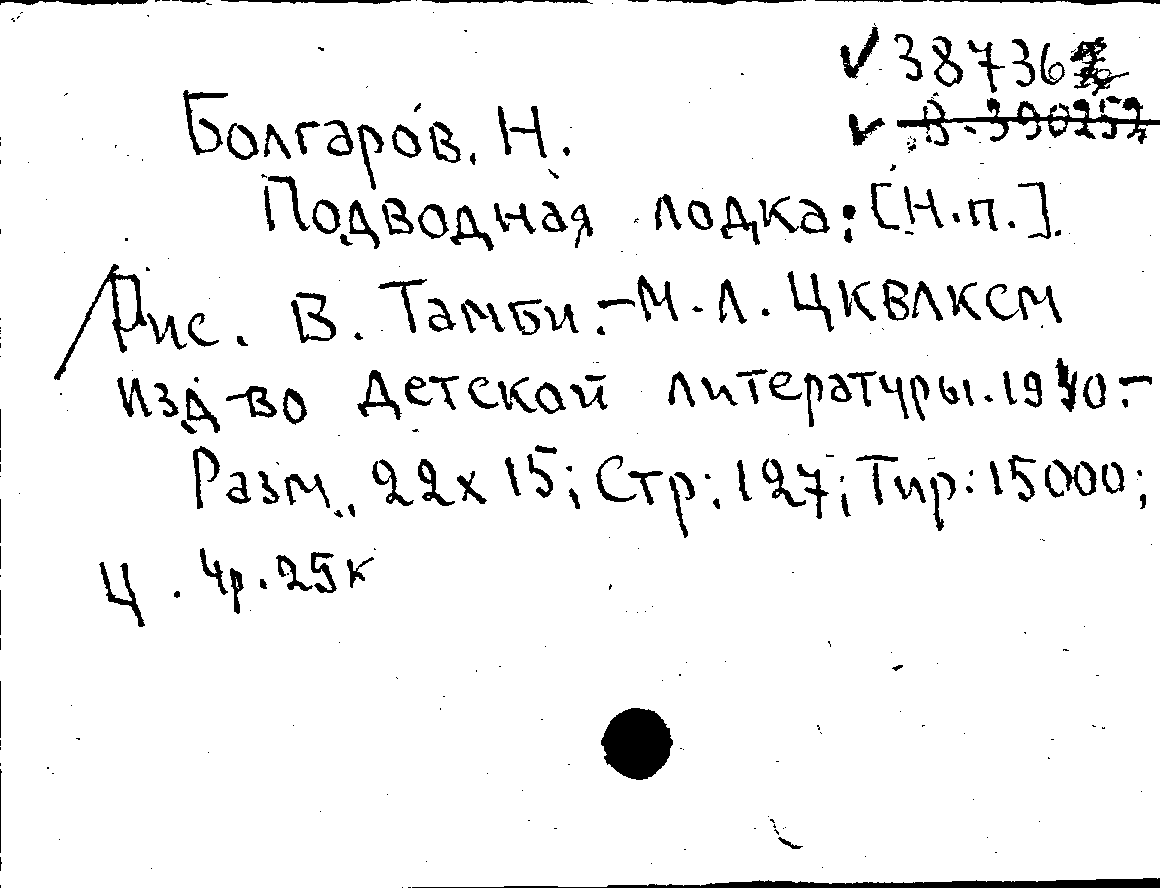 ✓ 38736
✓ В-390252
Болгаров. Н.
Подводная лодка: [Н.п.].
Рис. В. Тамби.-М.Л. ЦКВЛКСМ
изд-во детской литературы. 1940.-
Разм. 22х15; Стр: 127; Тир: 15000;
Ц. 4р.25к